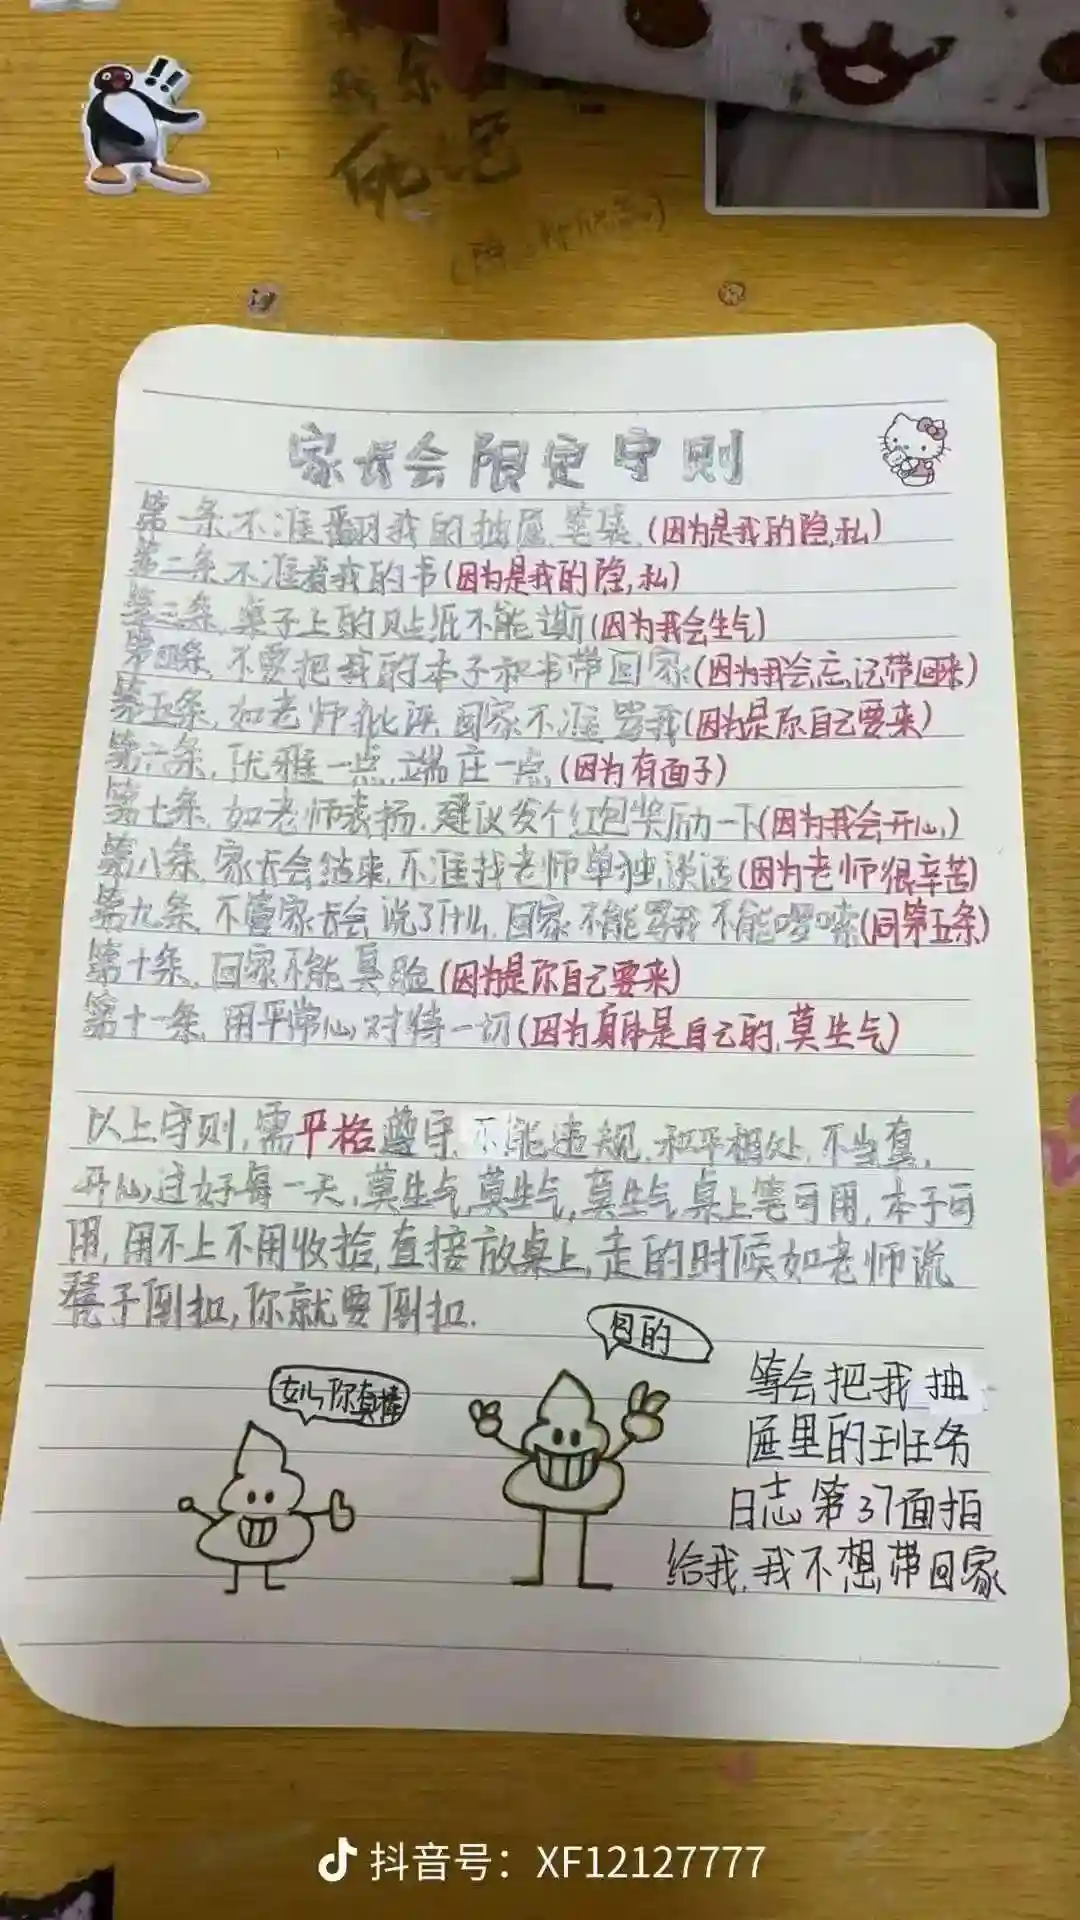 死
家长会限定守则
第一条,不准翻我的抽屉,笔袋,(因为是我的隐私)
第二条,不准看我的书(因为是我的隐私)
第三条,桌子上的贴纸不能撕(因为我会生气)
第四条,不要把我的本子和书带回家(因为我会忘记带回来)
第五条,如老师批评,回家不准骂我(因为是你自己要来)
第六条,优雅一点,端庄一点(因为有面子)
第七条,如老师表扬,建议发个红包奖励一下(因为我会开心)
第八条,家长会结束,不准找老师单独谈话(因为老师很辛苦)
第九条,不管家长会说了什么,回家不能骂我不能啰嗦(同第五条)
第十条,回家不能臭脸(因为是你自己要来)
第十一条,用平常心对待一切(因为身体是自己的,莫生气)
以上守则,需严格遵守,不能违规,和平相处,不当真,
开心过好每一天,莫生气,莫生气,莫生气,桌上笔可用,本子可
用,用不上不用收拾,直接放桌上,走的时候如老师说
凳子倒扣,你就要倒扣.
女儿你真棒
的
等会把我抽
屉里的班务
日志第37面拍
给我,我不想带回家
抖音号:XF12127777